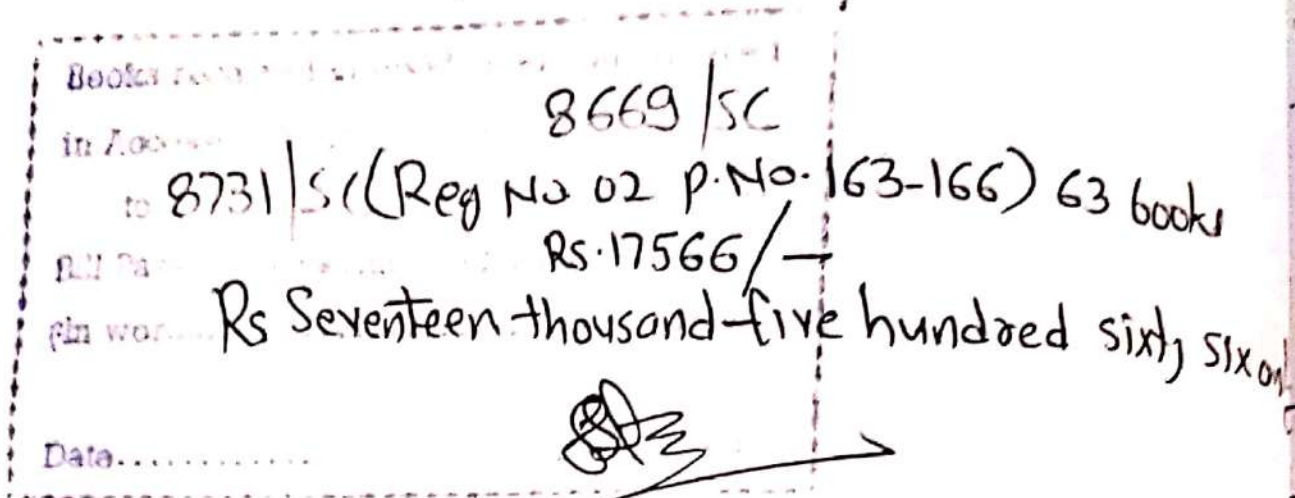 Books
8669/SC
in
to 8731/SC (Reg No 02 P.No. 163-166) 63 books
Rs. 17566/-
Rs Seventeen thousand five hundred sixty six
Date.............